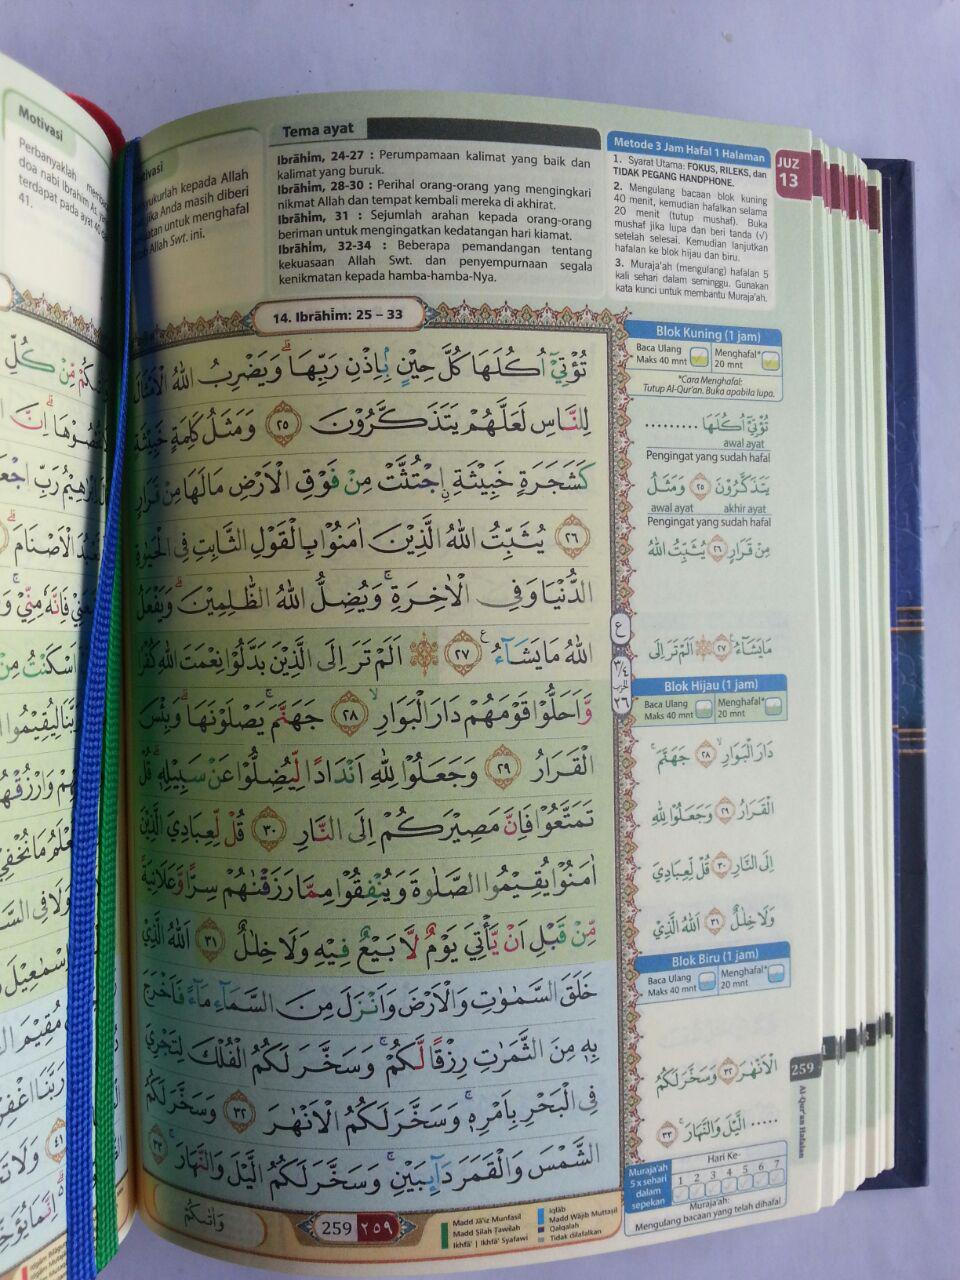 Motivasi
Tema ayat
Ibrāhim, 24-27 : Perumpamaan kalimat yang baik dan
kalimat yang buruk.
Ibrāhim, 28-30 : Perihal orang-orang yang mengingkari
nikmat Allah dan tempat kembali mereka di akhirat.
Ibrāhim, 31 : Sejumlah arahan kepada orang-orang
beriman untuk mengingatkan kedatangan hari kiamat.
Ibrāhim, 32-34 : Beberapa pemandangan tentang
kekuasaan Allah Swt. dan penyempurnaan segala
kenikmatan kepada hamba-hamba-Nya.
Metode 3 Jam Hafal 1 Halaman
1. Syarat Utama: FOKUS, RILEKS, dan
TIDAK PEGANG HANDPHONE.
2. Mengulang bacaan blok kuning
40 menit, kemudian hafalkan selama
20 menit (tutup mushaf). Buka
mushaf jika lupa dan beri tanda (√)
setelah selesai. Kemudian lanjutkan
hafalan ke blok hijau dan biru.
3. Muraja'ah (mengulang) hafalan 5
kali sehari dalam seminggu. Gunakan
kata kunci untuk membantu Muraja'ah.
JUZ
13
14. Ibrāhim: 25 – 33
تُؤْتِيْٓ اُكُلَهَا كُلَّ حِيْنٍ بِاِذْنِ رَبِّهَاۗ وَيَضْرِبُ اللّٰهُ الْاَمْثَالَ
لِلنَّاسِ لَعَلَّهُمْ يَتَذَكَّرُوْنَ ٢٥ وَمَثَلُ كَلِمَةٍ خَبِيْثَةٍ
كَشَجَرَةٍ خَبِيْثَةِ ِۨاجْتُثَّتْ مِنْ فَوْقِ الْاَرْضِ مَا لَهَا مِنْ قَرَارٍ
٢٦ يُثَبِّتُ اللّٰهُ الَّذِيْنَ اٰمَنُوْا بِالْقَوْلِ الثَّابِتِ فِى الْحَيٰوةِ
الدُّنْيَا وَفِى الْاٰخِرَةِۚ وَيُضِلُّ اللّٰهُ الظّٰلِمِيْنَۗ وَيَفْعَلُ
اللّٰهُ مَا يَشَاۤءُ ࣖ ٢٧ اَلَمْ تَرَ اِلَى الَّذِيْنَ بَدَّلُوْا نِعْمَتَ اللّٰهِ كُفْرًا
وَّاَحَلُّوْا قَوْمَهُمْ دَارَ الْبَوَارِۙ ٢٨ جَهَنَّمَۚ يَصْلَوْنَهَاۗ وَبِئْسَ
الْقَرَارُ ٢٩ وَجَعَلُوْا لِلّٰهِ اَنْدَادًا لِّيُضِلُّوْا عَنْ سَبِيْلِهٖۗ قُلْ
تَمَتَّعُوْا فَاِنَّ مَصِيْرَكُمْ اِلَى النَّارِ ٣٠ قُلْ لِّعِبَادِيَ الَّذِيْنَ
اٰمَنُوْا يُقِيْمُوا الصَّلٰوةَ وَيُنْفِقُوْا مِمَّا رَزَقْنٰهُمْ سِرًّا وَّعَلَانِيَةً
مِّنْ قَبْلِ اَنْ يَّأْتِيَ يَوْمٌ لَّا بَيْعٌ فِيْهِ وَلَا خِلٰلٌ ٣١ اَللّٰهُ الَّذِيْ
خَلَقَ السَّمٰوٰتِ وَالْاَرْضَ وَاَنْزَلَ مِنَ السَّمَاۤءِ مَاۤءً فَاَخْرَجَ
بِهٖ مِنَ الثَّمَرٰتِ رِزْقًا لَّكُمْۚ وَسَخَّرَ لَكُمُ الْفُلْكَ لِتَجْرِيَ
فِى الْبَحْرِ بِاَمْرِهٖۚ وَسَخَّرَ لَكُمُ الْاَنْهٰرَ ٣٢ وَسَخَّرَ لَكُمُ
الشَّمْسَ وَالْقَمَرَ دَاۤىِٕبَيْنِۚ وَسَخَّرَ لَكُمُ الَّيْلَ وَالنَّهَارَۚ ٣٣
وَاٰتٰىكُمْ
259 ٢٥٩
Madd Jā'iz Munfasil
Madd Ṣilah Ṭawilah
Ikhfā' | Ikhfā' Syafawi
Iqlāb
Madd Wājib Muttaṣil
Qalqalah
Tidak dilafalkan
Blok Kuning (1 jam)
Baca Ulang
Maks 40 mnt
Menghafal*
20 mnt
*Cara Menghafal:
Tutup Al-Qur'an. Buka apabila lupa.
تُؤْتِيْٓ اُكُلَهَا .........
awal ayat
Pengingat yang sudah hafal
يَتَذَكَّرُوْنَ ٢٥ وَمَثَلُ
awal ayat akhir ayat
Pengingat yang sudah hafal
مِنْ قَرَارٍ ٢٦ يُثَبِّتُ اللّٰهُ
مَا يَشَاۤءُ ٢٧ اَلَمْ تَرَ اِلَى
Blok Hijau (1 jam)
Baca Ulang
Maks 40 mnt
Menghafal*
20 mnt
دَارَ الْبَوَارِۙ ٢٨ جَهَنَّمَۚ
الْقَرَارُ ٢٩ وَجَعَلُوْا لِلّٰهِ
اِلَى النَّارِ ٣٠ قُلْ لِّعِبَادِيَ
وَلَا خِلٰلٌ ٣١ اَللّٰهُ الَّذِيْ
Blok Biru (1 jam)
Baca Ulang
Maks 40 mnt
Menghafal*
20 mnt
الْاَنْهٰرَ ٣٢ وَسَخَّرَ لَكُمُ
..... الَّيْلَ وَالنَّهَارَۚ ٣٣
Muraja'ah
5 x sehari
dalam
sepekan
Hari Ke-
1 2 3 4 5 6 7
Muraja'ah:
Mengulang bacaan yang telah dihafal
259
Al-Qur'an Hafalan